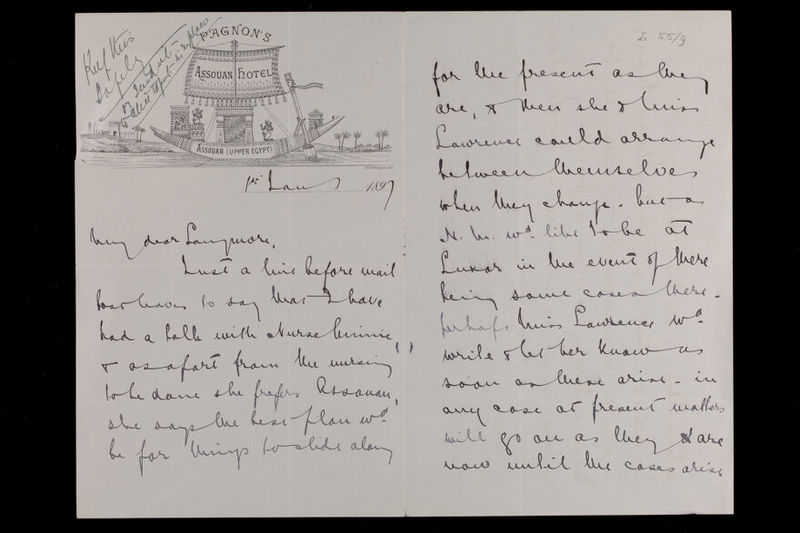 Keep this
safely
PAGNON'S
ASSOUAN HOTEL
ASSOUAN (UPPER EGYPT)
1st Jany 1897
My dear Longmore,
Just a line before mail
boat leaves to say that I have
had a talk with Nurse Minnie,
& as apart from the nursing
to be done she prefers Assouan,
she says the best plan wd
be for things to slide along
I 55/9
for the present as they
are, & then she & Miss
Lawrence could arrange
between themselves
when they change. but as
N. M. wd like to be at
Luxor in the event of there
being some cases there -
perhaps Miss Lawrence wd
write & let her know as
soon as these arise - in
any case at present matters
will go on as they are
now until the cases arise